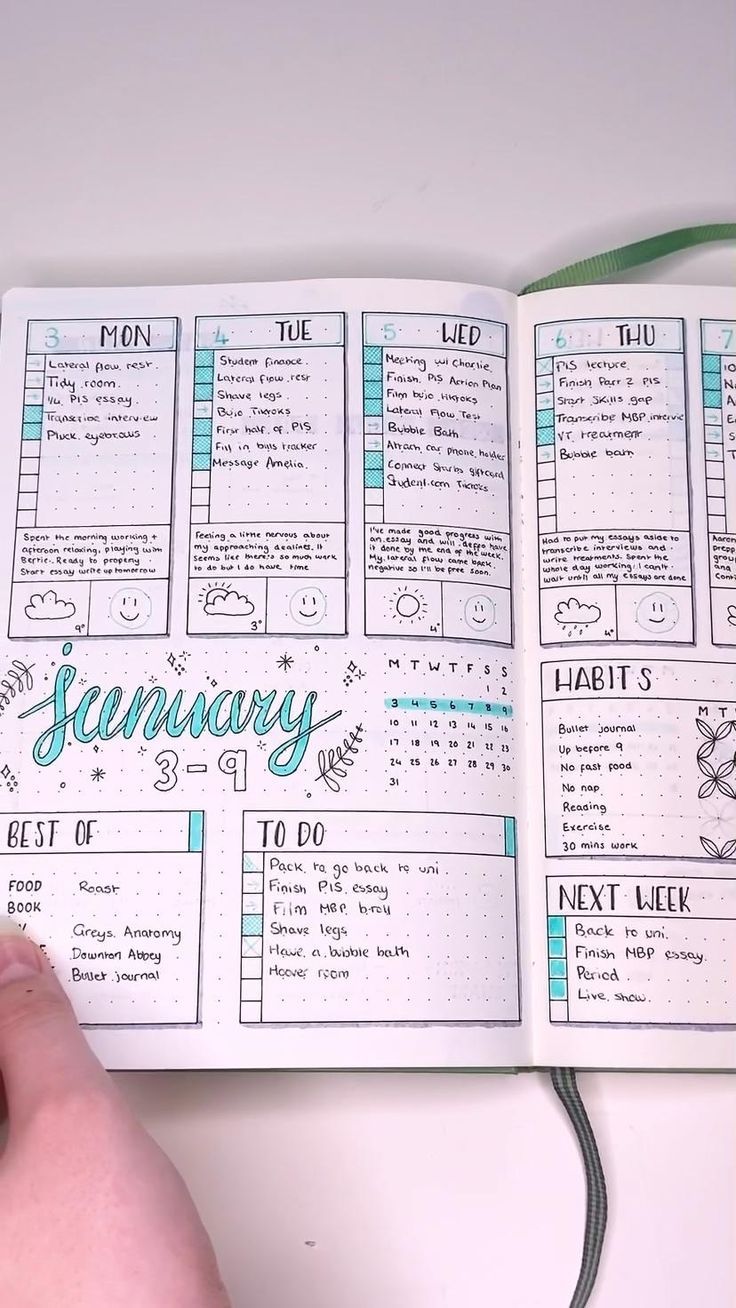 3 MON
Lateral flow rest.
Tidy room.
1/4 PIS essay.
Transcribe interview
Pluck eyebrows
Spent the morning working +
afternoon relaxing, playing with
Bertie. Ready to properly
Start essay write up tomorrow
9°
4 TUE
Student finance.
Lateral flow rest
Shave legs.
Bujo Tiktoks
First half of PIS
Fill in bills tracker
Message Amelia.
Feeling a little nervous about
my approaching dealines. It
seems like there's so much work
to do but I do have time
3°
5 WED
Meeting w/ Charlie.
Finish PIS Action Plan
Film bujo tiktoks
Lateral Flow Test
Bubble Bath
Attach car phone holder
Connect Starbs giftcard
Student.com Tiktoks
I've made good progress with
an essay and will deffo have
it done by me end of the week.
My lateral flow came back
negative so I'll be free soon.
4°
6 THU
PIS lecture.
Finish Part 2 PIS
Start skills gap
Transcribe MBP intervie
VT treatment.
Bubble bath
Had to put my essays aside to
transcribe interviews and
write treatments. Spent the
whole day working; I can't
wait until all my essays are done
4°
7
January
3-9
M T W T F S S
1 2
3 4 5 6 7 8 9
10 11 12 13 14 15 16
17 18 19 20 21 22 23
24 25 26 27 28 29 30
31
HABITS
M T
Bullet journal
Up before 9
No fast food
No nap
Reading
Exercise
30 mins work
BEST OF
FOOD Roast
BOOK
Greys Anatomy
Downton Abbey
Bullet journal
TO DO
Pack to go back to uni
Finish PIS essay
Film MBP b-roll
Shave legs
Have a bubble bath
Hoover room
NEXT WEEK
Back to uni.
Finish MBP essay.
Period
Live show.